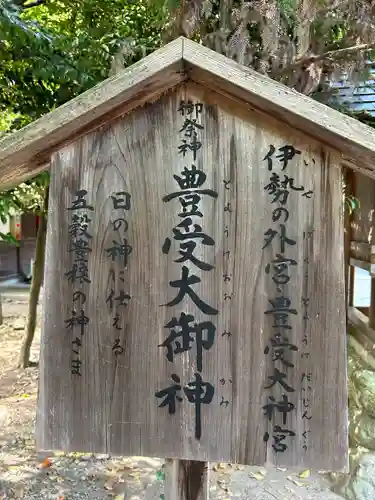 伊勢の外宮豊受大神宮
いせ げくうとようけだいじんぐう
御祭神
豊受大御神
とようけおおみかみ
日の神に仕える
五穀豊穣の神さま